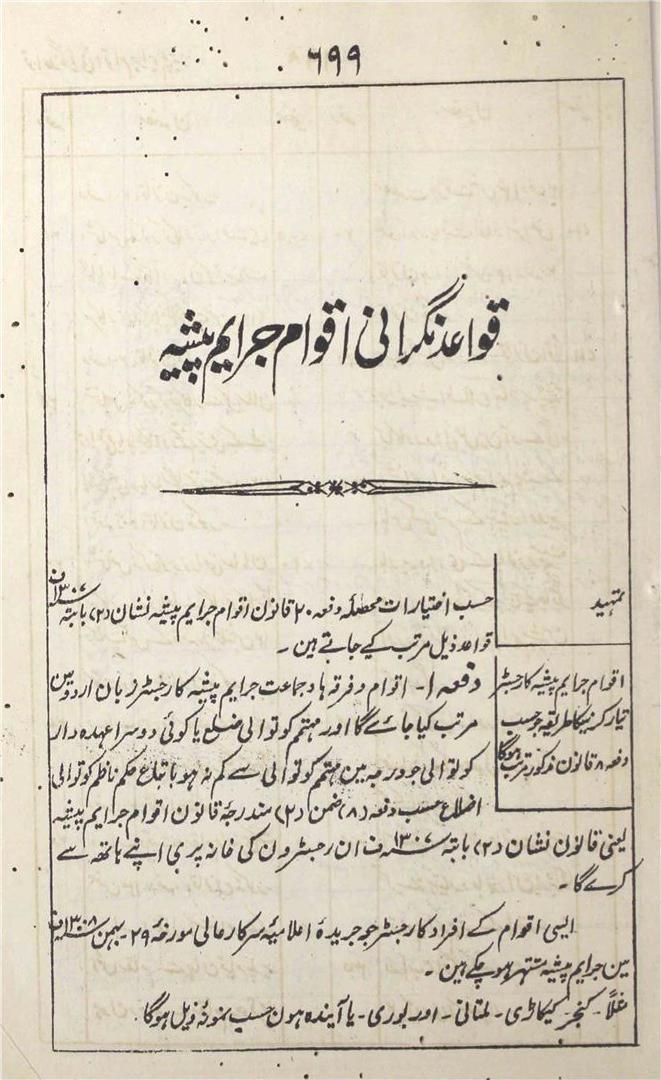 ۶۹۹
قواعد نگرانی اقوام جرایم پیشیہ
تمہید
حسب اختیارات محصلہ دفعہ ۲۰ قانون اقوام جرایم پیشیہ نشان (۲) بابتہ ۱۳۰۷ف
قواعد ذیل مرتب کیے جاتے ہین۔
اقوام جرایم پیشیہ کا رجسٹر
تیار کرنیکا طریقہ جو حسب
دفعہ ۸ قانون مذکور مرتب ہوگا
دفعہ ۱۔ اقوام و فرقہ ہا و جماعت جرایم پیشیہ کا رجسٹر زبان اردو مین
مرتب کیا جائے گا اور مہتمم کوتوالی ضلع یا کوئی دوسرا عہدہ دار
کوتوالی جو درجہ مین مہتمم کوتوالی سے کم نہ ہو باتباع حکم ناظم کوتوالی
اضلاع حسب دفعہ (۸) ضمن (۲) مندرجۂ قانون اقوام جرایم پیشیہ
یعنی قانون نشان (۲) بابتہ ۱۳۰۷ف ان رجسٹرون کی خانہ پری اپنے ہاتھہ سے
کرے گا۔
ایسی اقوام کے افراد کا رجسٹر جو جریدۂ اعلامیۂ سرکار عالی مورخۂ ۲۹۔ بہمن ۱۳۰۸ف
مین جرایم پیشیہ مشتہر ہو چکے ہین۔
مثلاً۔ کنجر کیکاڑی۔ ملتانی۔ اور بوری۔ یا آیندہ ہون حسب نمونۂ ذیل ہوگا۔